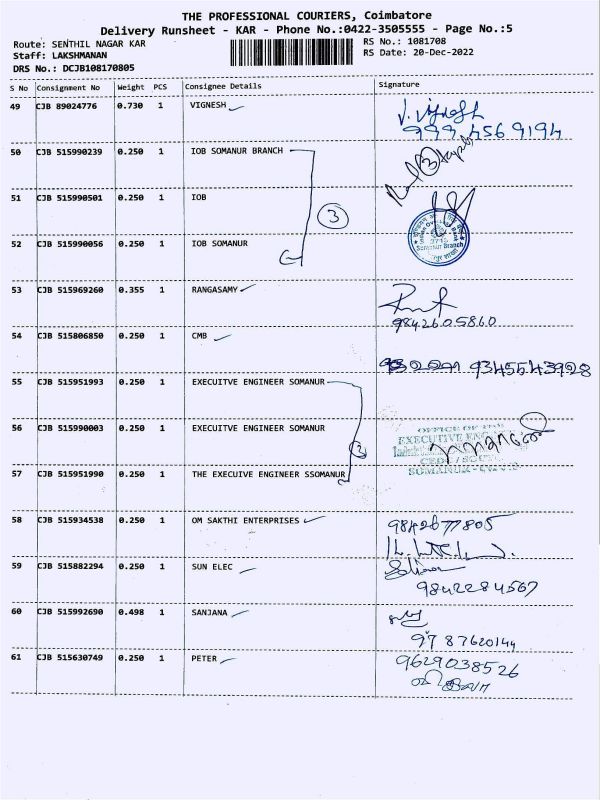 THE PROFESSIONAL COURIERS, Coimbatore
Delivery Runsheet - KAR - Phone No.:0422-3505555 - Page No.:5
Route: SENTHIL NAGAR KAR
RS No.: 1081708
Staff: LAKSHMANAN
RS Date: 20-Dec-2022
DRS No.: DCJB108170805
S No Consignment No Weight PCS Consignee Details Signature
49 CJB 89024776 0.730 1 VIGNESH V. Vignesh
999 4569194
50 CJB 515990239 0.250 1 IOB SOMANUR BRANCH
51 CJB 515990501 0.250 1 IOB
3
52 CJB 515990056 0.250 1 IOB SOMANUR
Somanur Branch
53 CJB 515969260 0.355 1 RANGASAMY
9842605860
54 CJB 515806850 0.250 1 CMB
9345543928
55 CJB 515951993 0.250 1 EXECUITVE ENGINEER SOMANUR
56 CJB 515990003 0.250 1 EXECUITVE ENGINEER SOMANUR
OFFICE OF THE
EXECUTIVE ENG
57 CJB 515951990 0.250 1 THE EXECUIVE ENGINEER SSOMANUR
SOMANUR
58 CJB 515934538 0.250 1 OM SAKTHI ENTERPRISES 9842677805
59 CJB 515882294 0.250 1 SUN ELEC
9842284567
60 CJB 515992690 0.498 1 SANJANA
9787620144
61 CJB 515630749 0.250 1 PETER 9629038526